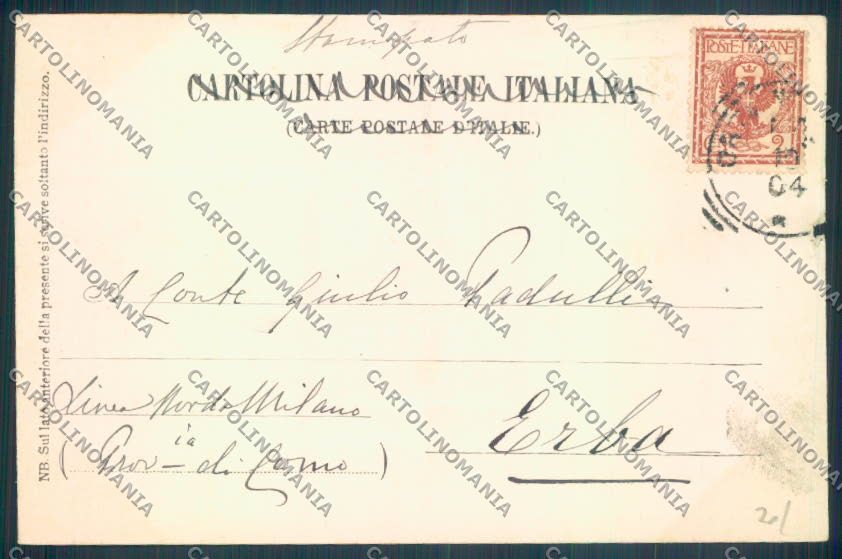 Stampato
CARTOLINA POSTALE ITALIANA
(CARTE POSTALE D'ITALIE.)
POSTE·ITALIANE
2
04
NB. Sul lato anteriore della presente si scrive soltanto l'indirizzo.
Al Conte Giulio Padulli
Linea Nord Milano
Erba
(Prov-ia di Como)
CARTOLINOMANIA